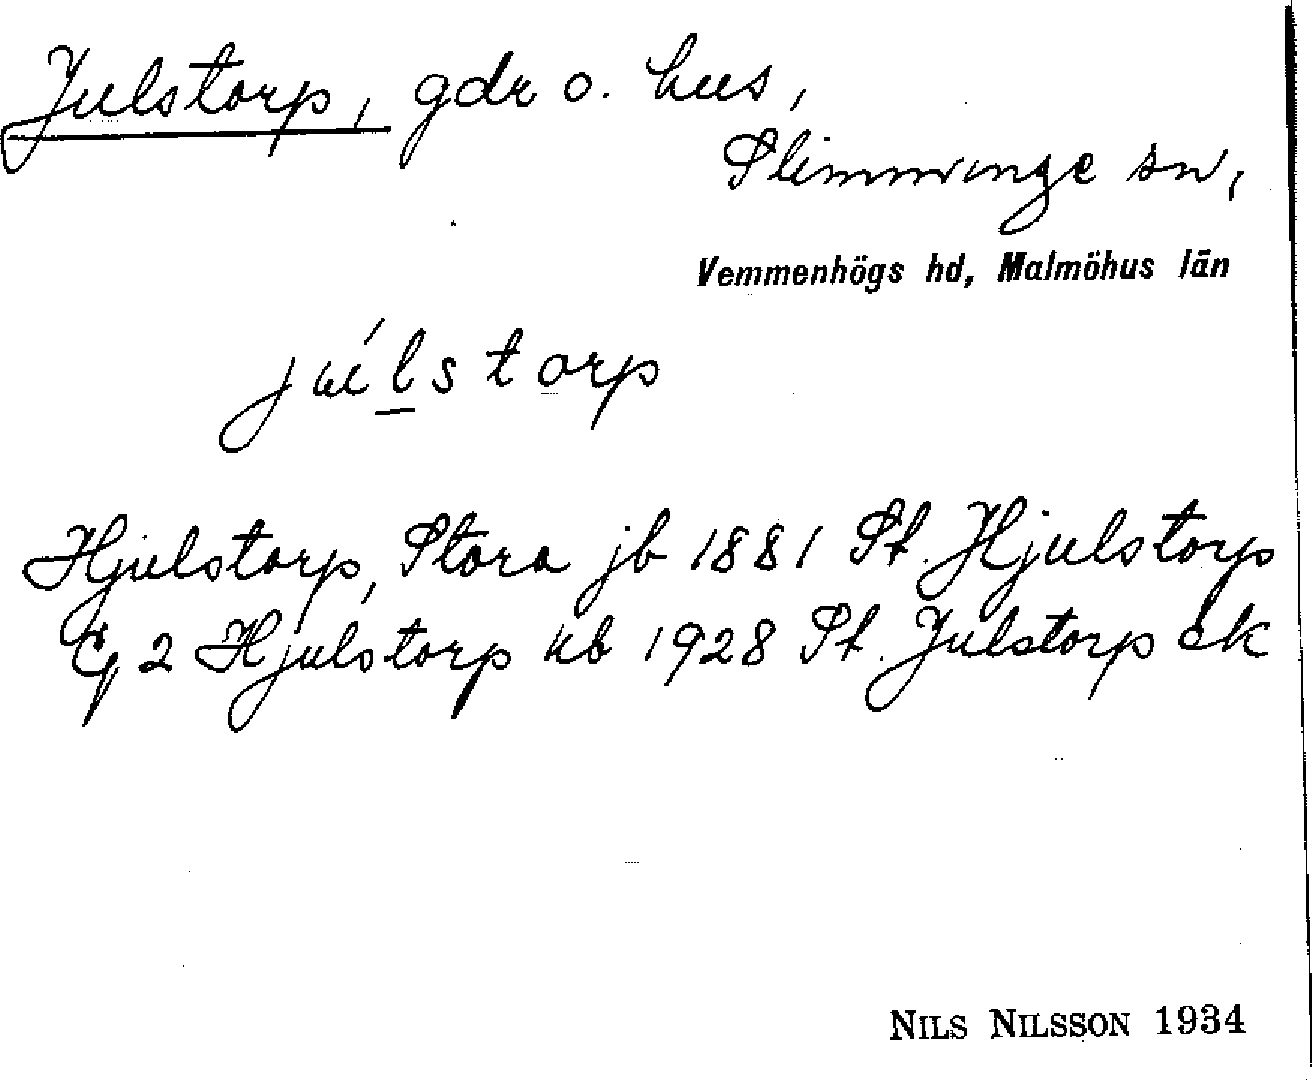 Julstorp, gdr o. hus,
Slimminge sn,
Vemmenhögs hd, Malmöhus län
júlstorp
Hjulstorp, Stora jb 1881 St. Hjulstorp
Eg 2 Hjulstorp kb 1928 St. Julstorp ek
NILS NILSSON 1934